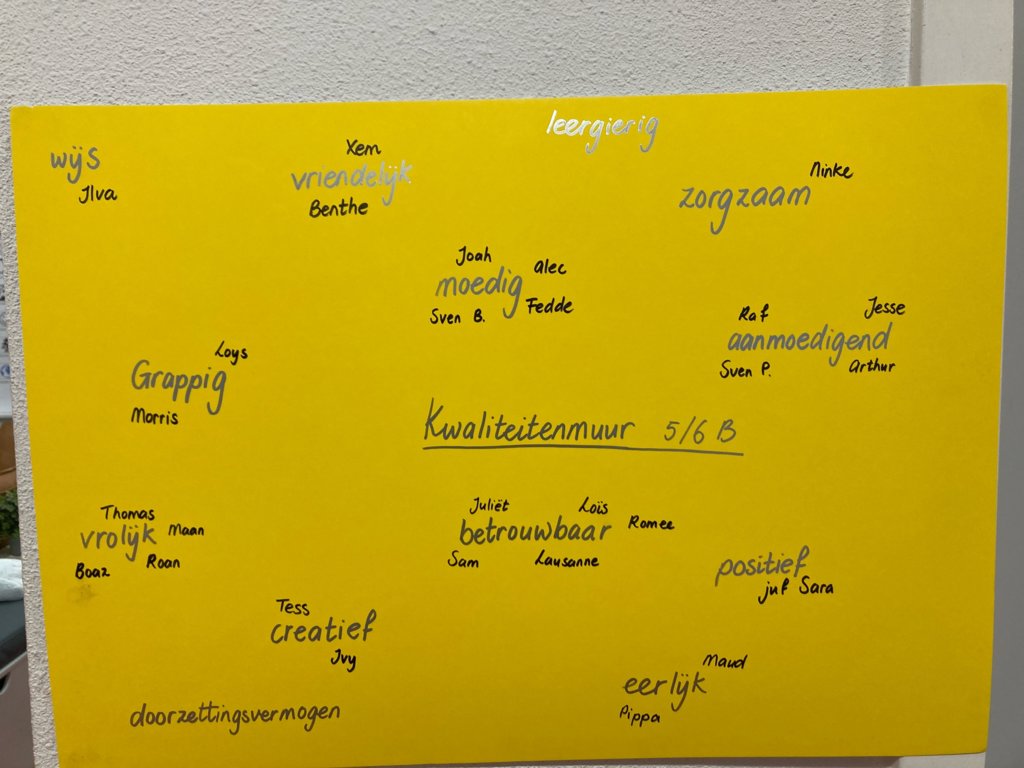 leergierig
wijs
Ilva
Xem
vriendelijk
Benthe
Ninke
zorgzaam
Joah
alec
moedig
Sven B.
Fedde
Raf
Jesse
aanmoedigend
Sven P.
Arthur
Loys
Grappig
Morris
Kwaliteitenmuur 5/6 B
Thomas
vrolijk
Maan
Boaz
Roan
Juliët
Loïs
betrouwbaar
Romee
Sam
Lausanne
positief
juf Sara
Tess
creatief
Ivy
Maud
eerlijk
Pippa
doorzettingsvermogen